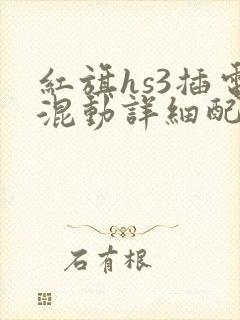 紅旗hs3插電
混動詳細配
石有根